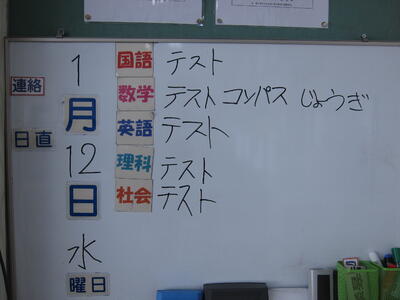 連絡
日直
1
月
12
日
水
曜日
国語 テスト
数学 テスト コンパス じょうぎ
英語 テスト
理科 テスト
社会 テスト